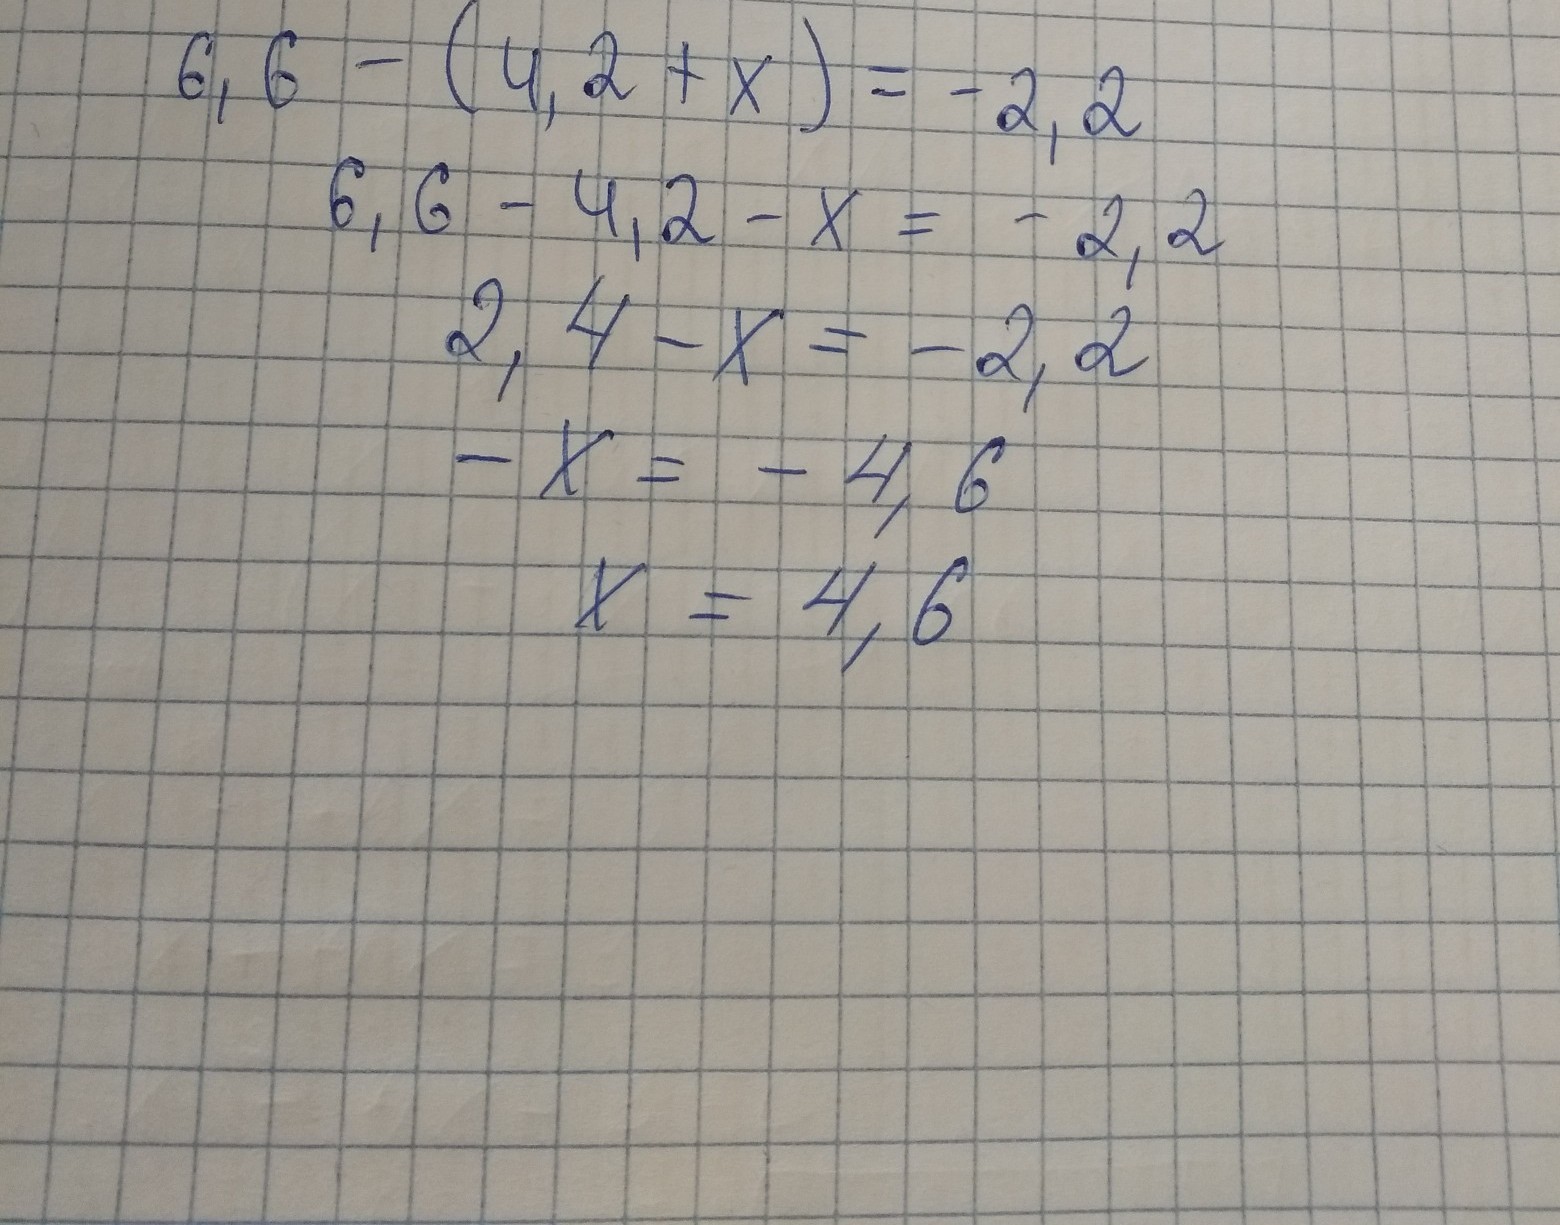 6,6 - (4,2 + x) = -2,2
6,6 - 4,2 - x = -2,2
2,4 - x = -2,2
-x = -4,6
x = 4,6